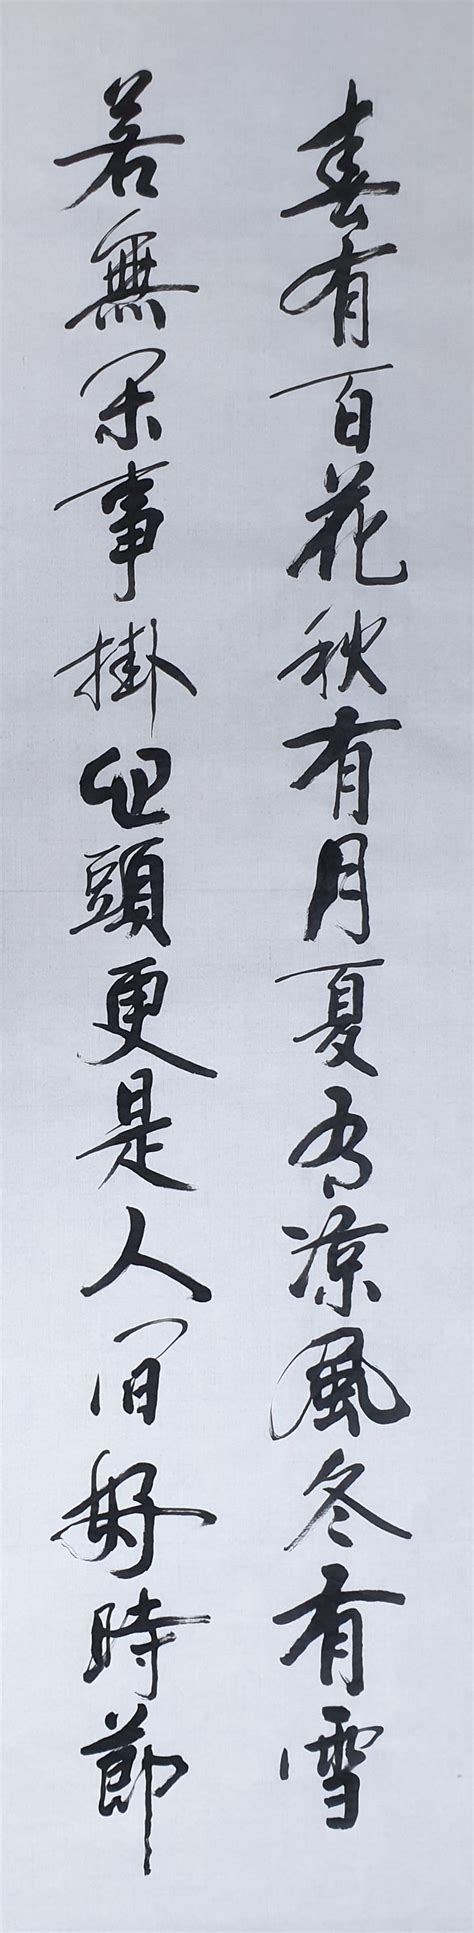 春有百花秋有月夏有凉風冬有雪
若無閑事掛心頭更是人間好時節